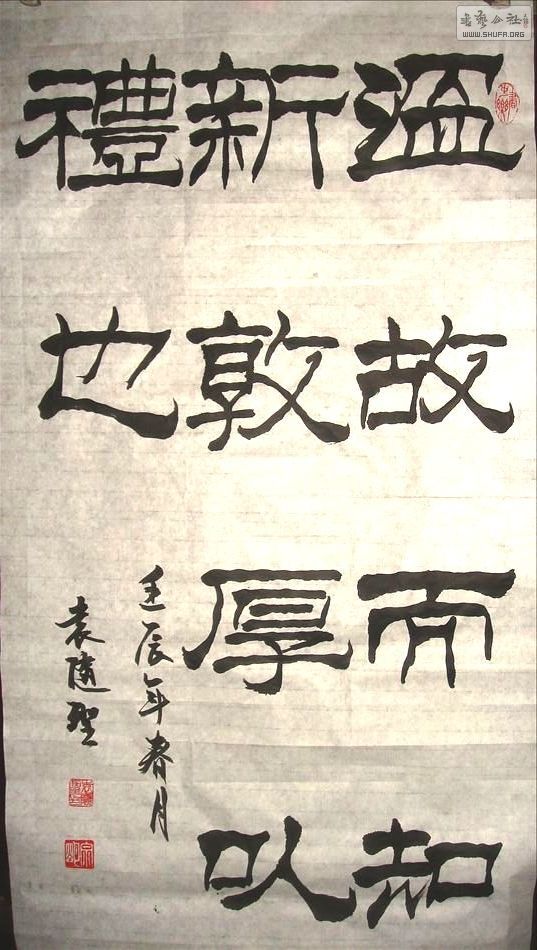 温故而知
新敦厚以
禮也
壬辰年春月
袁隨聖
書藝公社
WWW.SHUFA.ORG